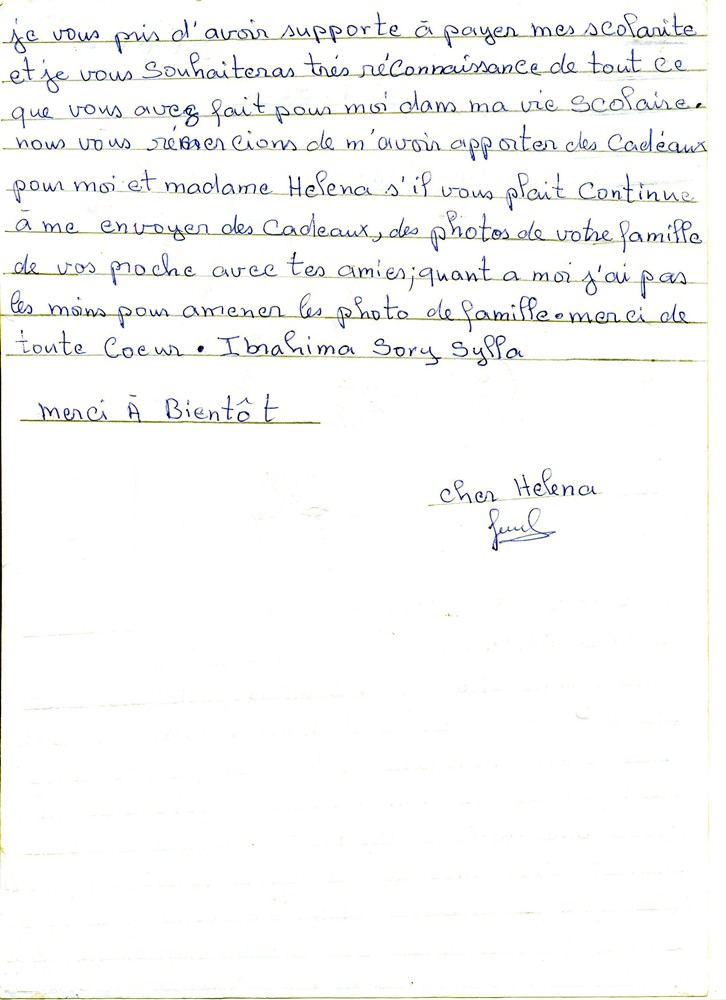 je vous pris d'avoir supporte à payer mes scolarite
et je vous Souhaiteras trés réconnaissance de tout ce
que vous avez fait pour moi dans ma vie Scolaire.
nous vous rémercions de m'avoir apporter des Cadéaux
pour moi et madame Helena s'il vous plait Continue
à me envoyer des Cadeaux, des photos de votre famille
de vos proche avec tes amies; quant a moi j'ai pas
les moins pour amener les photo de famille. merci de
toute Coeur. Ibrahima Sory Sylla
merci À Bientôt
cher Helena